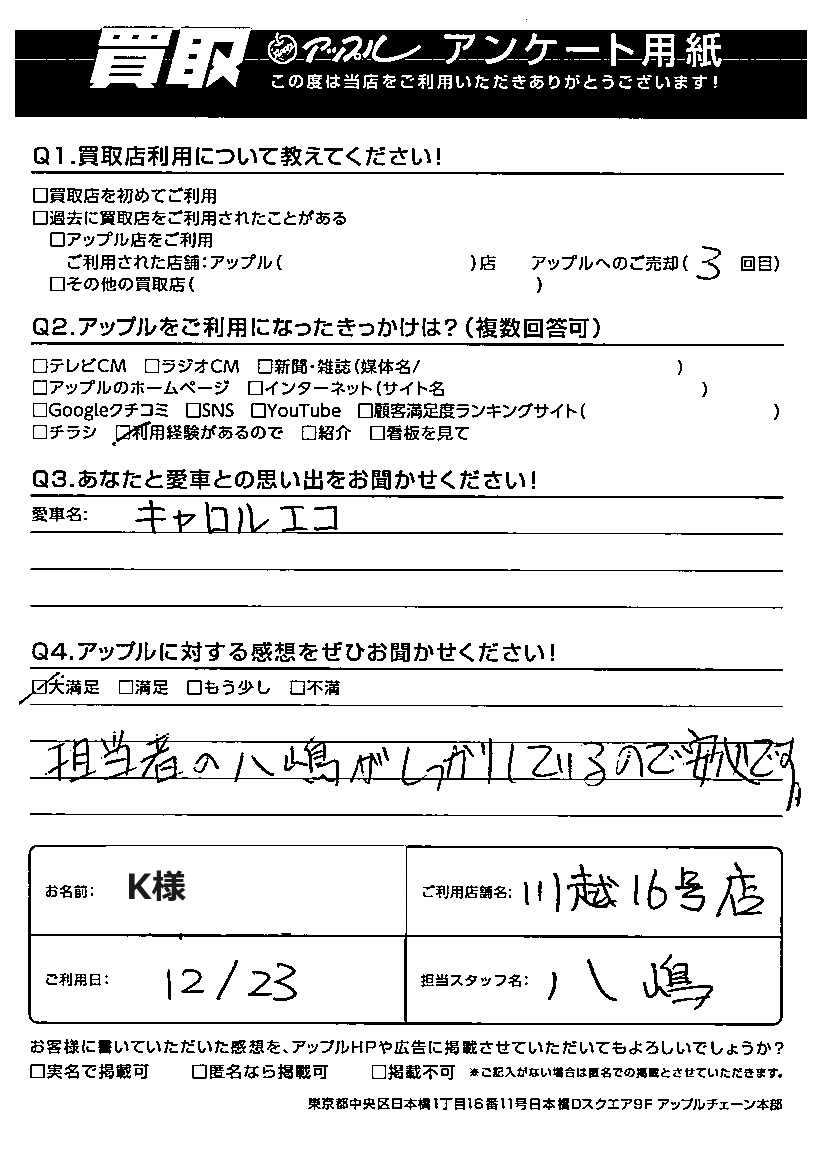 買取 アップル アンケート用紙
この度は当店をご利用いただきありがとうございます!
Q1.買取店利用について教えてください!
□買取店を初めてご利用
□過去に買取店をご利用されたことがある
□アップル店をご利用
ご利用された店舗:アップル( )店 アップルへのご売却( 3 回目)
□その他の買取店( )
Q2.アップルをご利用になったきっかけは?(複数回答可)
□テレビCM □ラジオCM □新聞・雑誌(媒体名/ )
□アップルのホームページ □インターネット(サイト名 )
□Googleクチコミ □SNS □YouTube □顧客満足度ランキングサイト( )
□チラシ ☑利用経験があるので □紹介 □看板を見て
Q3.あなたと愛車との思い出をお聞かせください!
愛車名: キャロルエコ
Q4.アップルに対する感想をぜひお聞かせください!
☑大満足 □満足 □もう少し □不満
担当者の八嶋がしっかりしているので安心です。
お名前: K様 ご利用店舗名: 川越16号店
ご利用日: 12/23 担当スタッフ名: 八嶋
お客様に書いていただいた感想を、アップルHPや広告に掲載させていただいてもよろしいでしょうか?
□実名で掲載可 □匿名なら掲載可 □掲載不可 ※ご記入がない場合は匿名での掲載とさせていただきます。
東京都中央区日本橋1丁目16番11号日本橋Dスクエア9F アップルチェーン本部